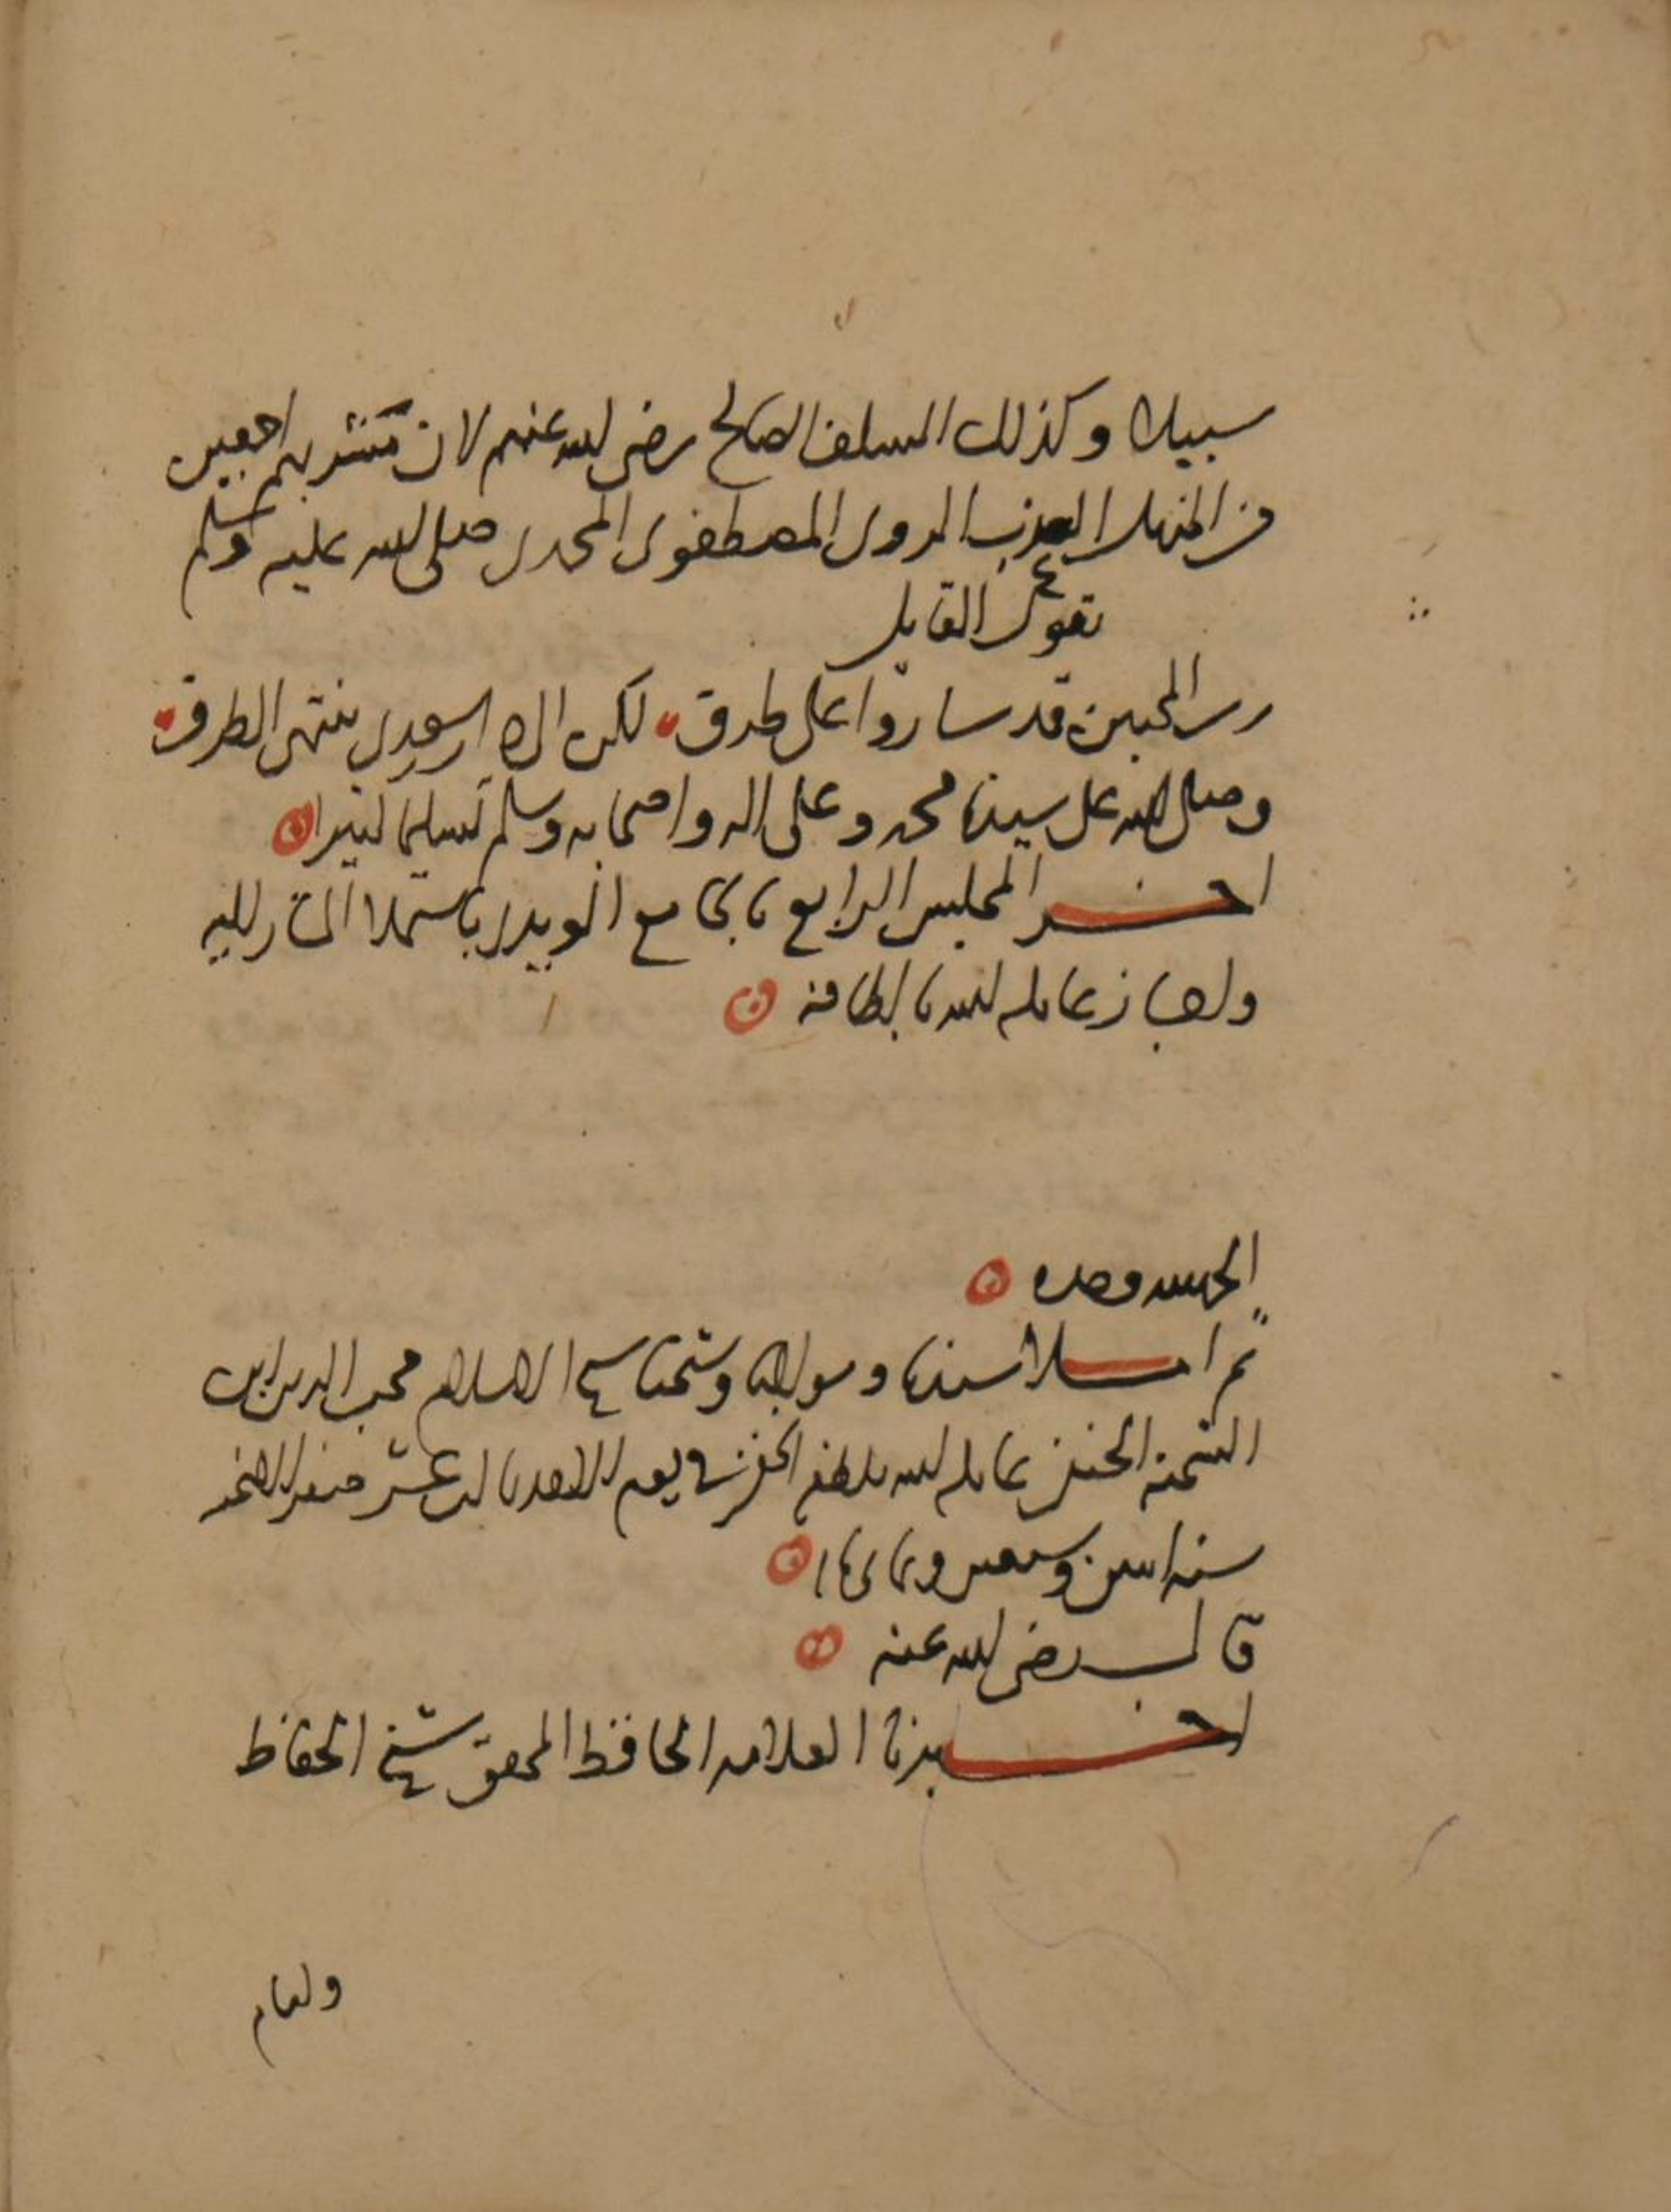 سبيلا وكذلك السلف الصالح رضي الله عنهم لان مشربهم اجمعين
من المنهل العذب الروي المصطفوي المحمدي صلى الله عليه وسلم
يقول القايل
المحبين قد ساروا على طرق لكن الى منتهى الطرق
وصلى الله على سيدنا محمد وعلى اله واصحابه وسلم تسليما كثيرا
اخر المجلس الرابع بالجامع باستملا
عامله الله بالطافه
الحمد لله وحده
ثم املا سيدنا ومولانا وشيخنا شيخ الاسلام محب الدين ابن
الشحنة الحنفي عامله الله بلطفه الخفي في يوم الاحد ثالث عشر صفر الخير
سنة اثنين وسبعين وثمانمائة
قال رضي الله عنه
اخبرنا العلامه الحافظ المحقق شيخ الحفاظ